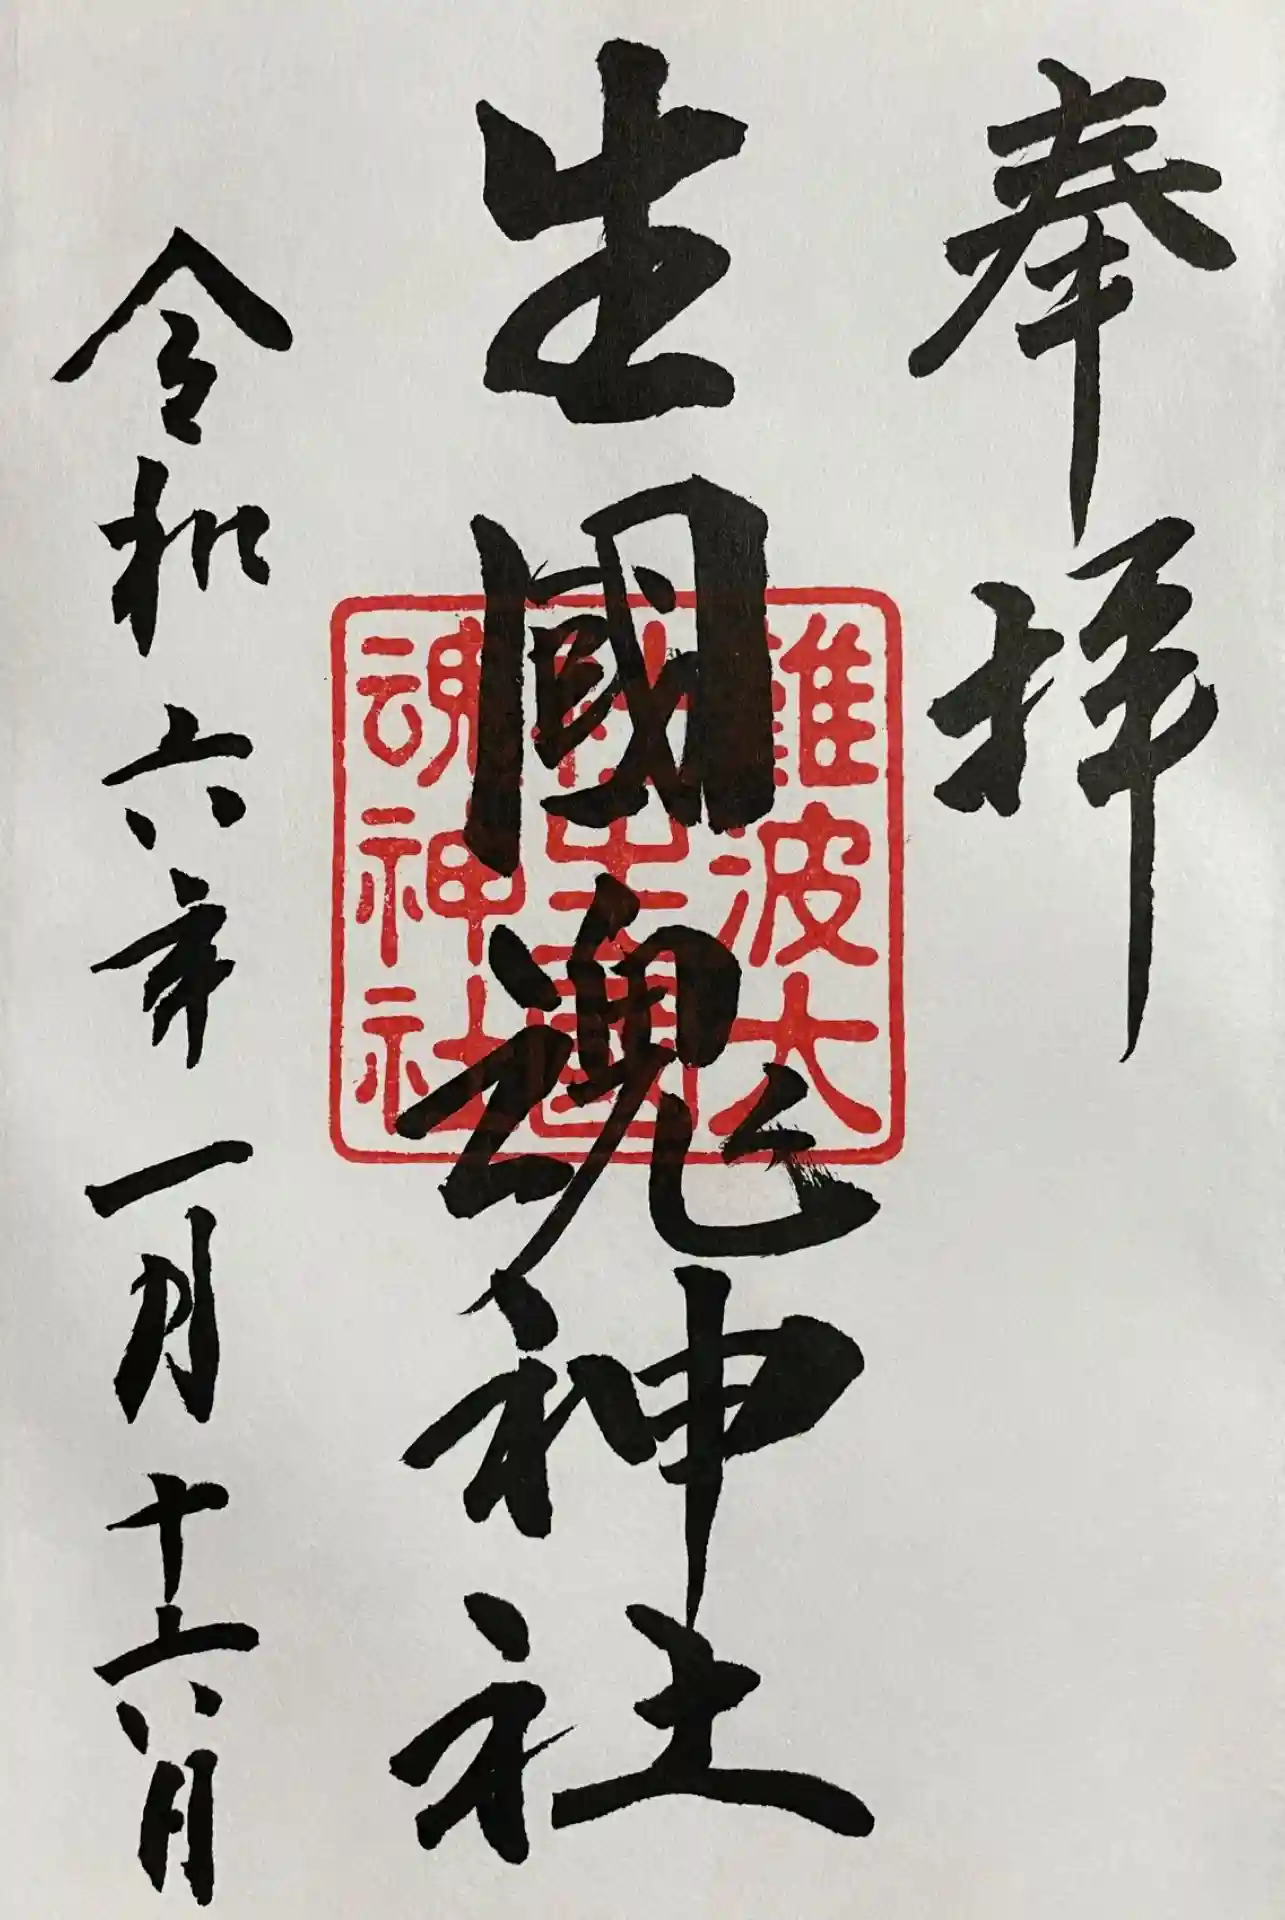 奉拝
生國魂神社
令和六年一月十六日
難波大
社生國
魂神社